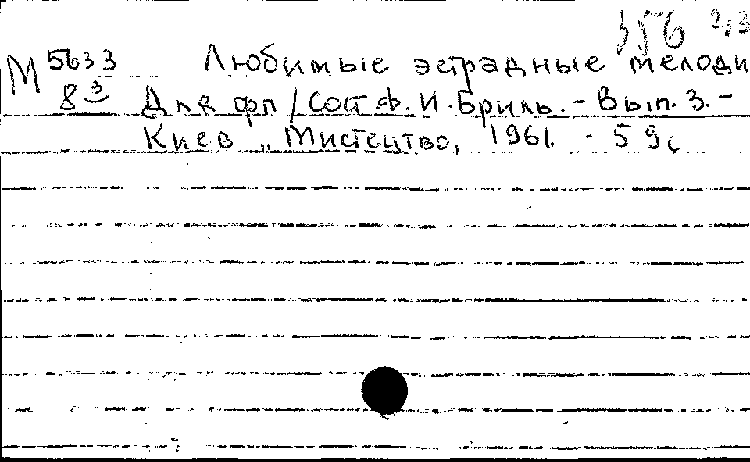 356 2,3
М 5633 Любимые эстрадные мелоди
8 3 Для фп / Сост Ф. И. Бриль. - Вып. 3. -
Киев, Мистецтво, 1961. - 59с